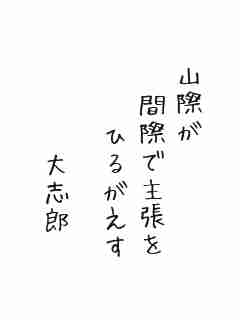 山際が
間際で主張を
ひるがえす
大志郎